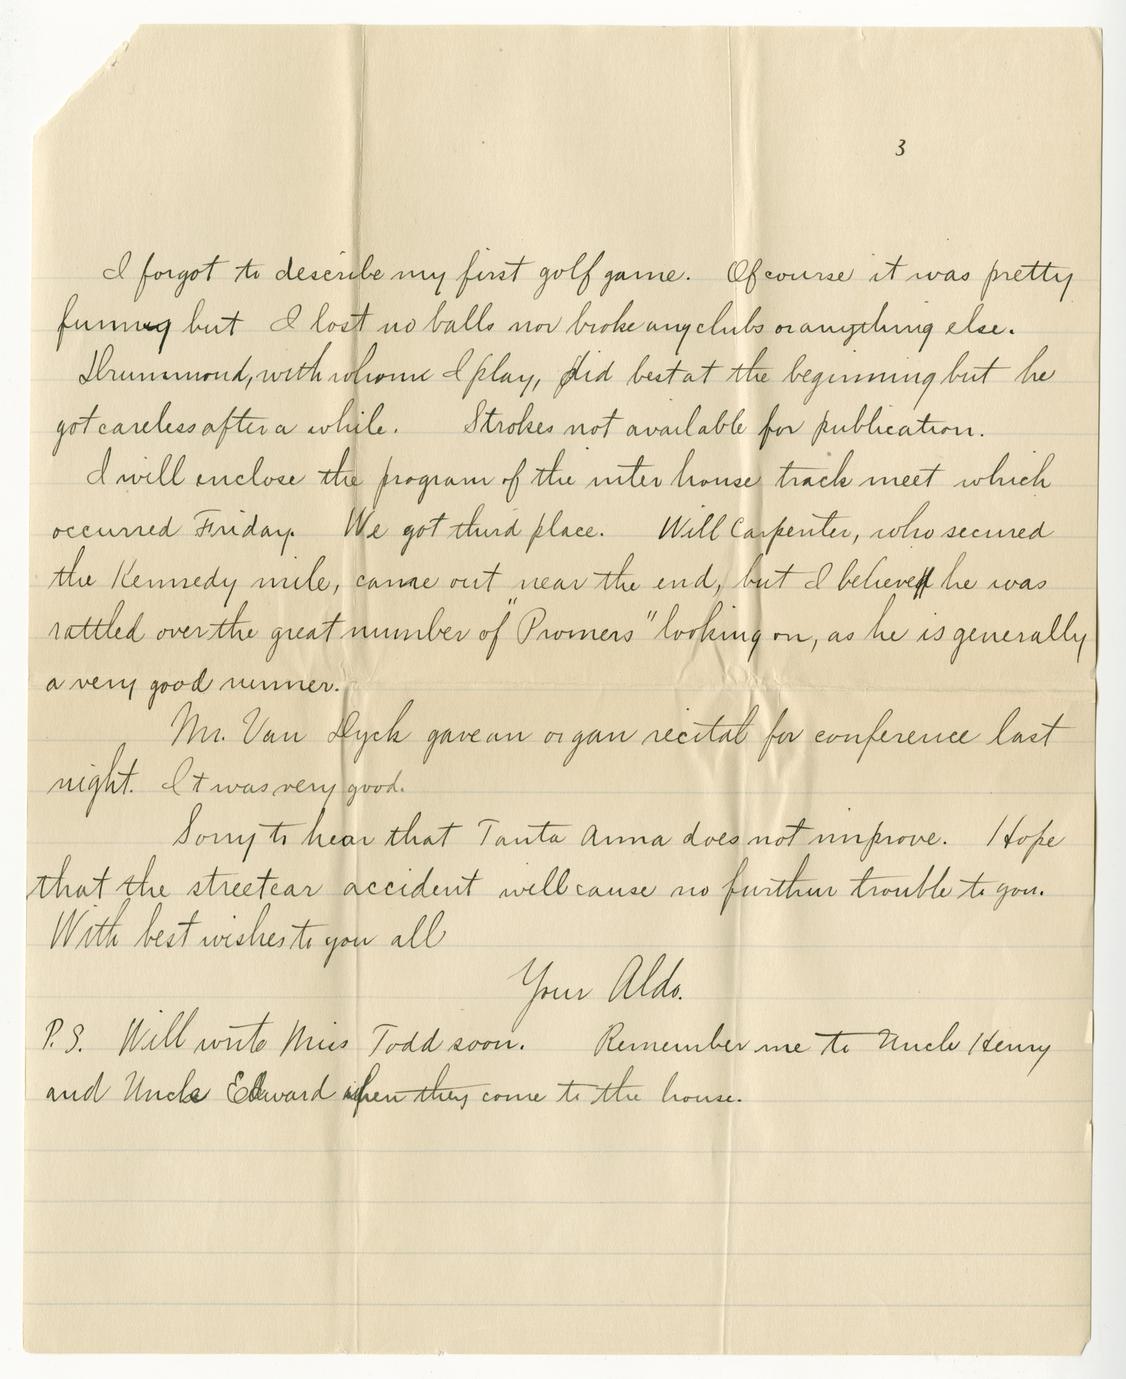 3
I forgot to describe my first golf game. Of course it was pretty
funny but I lost no balls nor broke any clubs or anything else.
Drummond, with whome I play, did best at the beginning but he
got careless after a while. Strokes not available for publication.
I will enclose the program of the inter house track meet which
occurred Friday. We got third place. Will Carpenter, who secured
the Kennedy mile, came out near the end, but I believe he was
rattled over the great number of "Promers" looking on, as he is generally
a very good runner.
Mr. Van Dyck gave an organ recital for conference last
night. It was very good.
Sorry to hear that Tanta Anna does not improve. Hope
that the streetcar accident will cause no further trouble to you.
With best wishes to you all
Your Aldo.
P.S. Will write Miss Todd soon. Remember me to Uncle Henry
and Uncle Edward when they come to the house.